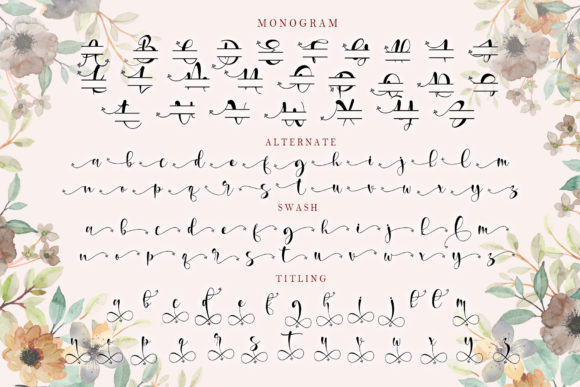 MONOGRAM
A B C D E F G H I J
K L M N O P Q R S
T U V W X Y Z
ALTERNATE
a b c d e f g h i j k l m
n o p q r s t u v w x y z
SWASH
a b c d e f g h i j k l m
n o p q r s t u v w x y z
TITLING
a b c d e f g h i j k l m
n o p q r s t u v w x y z